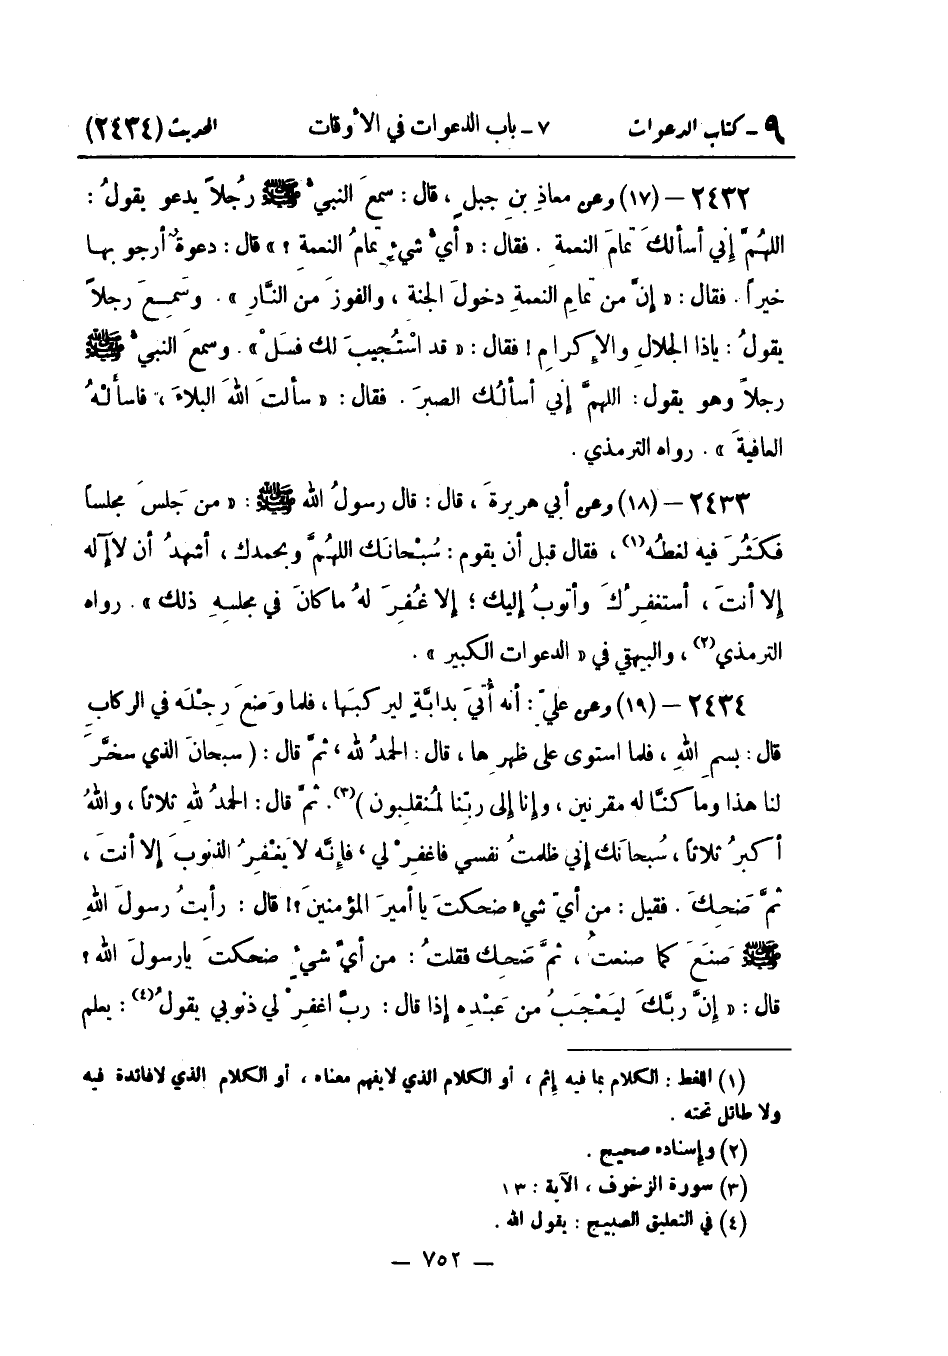 ٩ - كتاب الدعوات ٧ - باب الدعوات في الأوقات الحديث (٢٤٣٤)
٢٤٣٢ - (١٧) وعن معاذِ بنِ جبلٍ ، قال : سمعَ النبيُّ ﷺ رجُلاً يدعو يقولُ :
اللهُمَّ إِني أسألكَ تمامَ النعمةِ . فقال : « أيُّ شيءٍ تمامُ النعمةِ ؟ » قال : دعوةٌ أرجو بها
خيراً . فقال : « إنَّ من تمامِ النعمةِ دخولَ الجنةِ ، والفوزَ من النَّارِ » . وسَمِعَ رجلاً
يقولُ : ياذا الجلالِ والإكرامِ ! فقال : « قد اسْتُجيبَ لك فسَلْ » . وسمعَ النبيُّ ﷺ
رجلاً وهو يقول : اللهمَّ إني أسألُك الصبرَ . فقال : « سألتَ اللهَ البلاءَ ، فاسألْهُ
العافيةَ » . رواه الترمذي .
٢٤٣٣ - (١٨) وعن أبي هريرةَ ، قال : قال رسولُ الله ﷺ : « من جَلسَ مجلساً
فكَثُرَ فيه لغطُه(١) ، فقال قبل أن يقوم : سُبْحانَك اللهُمَّ وبحمدك ، أشهدُ أن لاإله
إلا أنتَ ، أستغفرُكَ وأتوبُ إليك ؛ إلا غُفِرَ لهُ ماكانَ في مجلسِهِ ذلك » . رواه
الترمذي(٢) ، والبيهقي في « الدعوات الكبير » .
٢٤٣٤ - (١٩) وعن عليّ : أنه أُتيَ بدابَّةٍ ليركبَها ، فلما وَضعَ رِجْلَه في الركابِ
قال : بسمِ اللهِ ، فلما استوى على ظهرِها ، قال : الحمدُ لله ، ثمَّ قال : ( سبحانَ الذي سخَّرَ
لنا هذا وما كنَّا له مقرنين ، وإنا إلى ربِّنا لمُنقلبون )(٣). ثمَّ قال : الحمدُ للهِ ثلاثاً ، واللهُ
أكبرُ ثلاثاً ، سُبحانَك إني ظلمتُ نفسي فاغفِرْ لي ، فإنَّه لا يَغْفِرُ الذنوبَ إلا أنتَ ،
ثمَّ ضَحِكَ . فقيل : من أيِّ شيء ضحكتَ يا أميرَ المؤمنينَ ؟! قال : رأيتُ رسولَ اللهِ
ﷺ صَنَعَ كما صنعتُ ، ثمَّ ضَحِك فقلتُ : من أيِّ شيءٍ ضحكتَ يارسولَ الله ؟
قال : « إنَّ ربَّكَ ليَعْجَبُ من عَبْدِه إذا قال : ربِّ اغفِرْ لي ذنوبي يقولُ(٤) : يعلم
(١) اللغط : الكلام بما فيه إثم ، أو الكلام الذي لايفهم معناه ، أو الكلام الذي لافائدة فيه
ولا طائل تحته .
(٢) وإسناده صحيح .
(٣) سورة الزخرف ، الآية : ١٣
(٤) في التعليق الصبيح : يقول الله .
— ٧٥٢ —